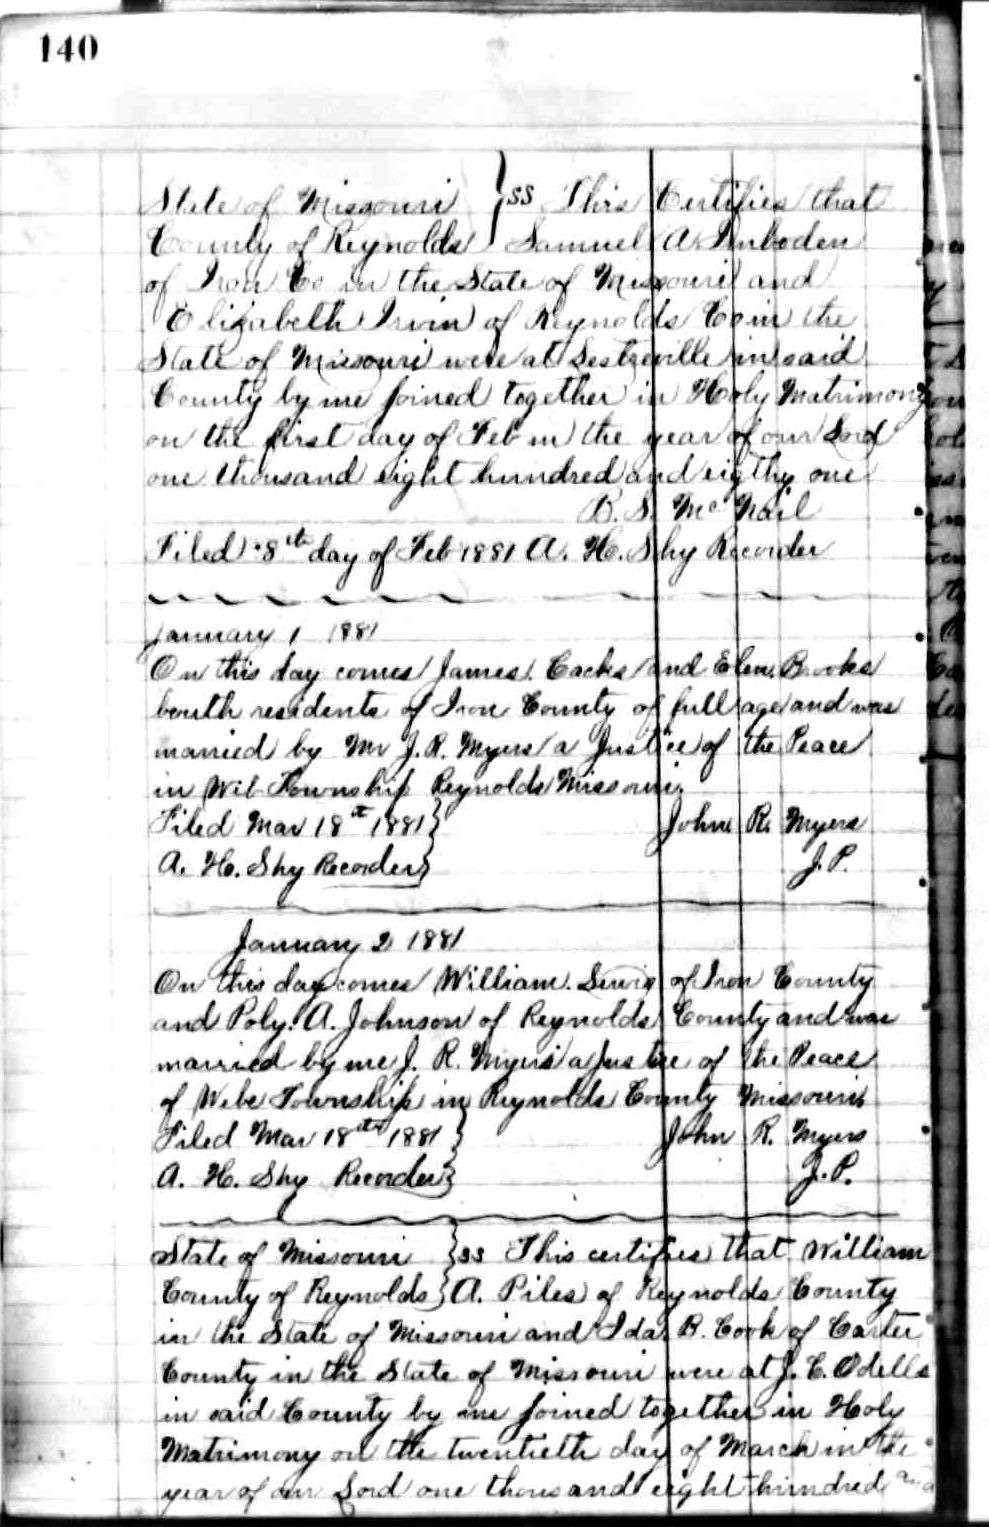 140
State of Missouri } ss This Certifies that
County of Reynolds } Samuel A Imboden
of Iron Co in the State of Missouri and
Elizabeth Irvin of Reynolds Co in the
State of Missouri were at Lesterville in said
County by me joined together in Holy Matrimony
on the first day of Feb in the year of our Lord
one thousand eight hundred and eigthy one
B. S. Mc Nail
Filed 8th day of Feb 1881 A. H. Shy Recorder
January 1 1881
On this day comes James Cacks and Elen Brooks
bouth residents of Iron County of full age and was
married by Mr J. R. Myers a Justice of the Peace
in Web Township Reynolds Missouri.
Filed Mar 18th 1881 } John R. Myers
A. H. Shy Recorder } J. P.
January 2 1881
On this day comes William of Iron County
and Poly. A. Johnson of Reynolds County and was
married by me J. R. Myers a Justice of the Peace
of Webe Township in Reynolds County Missouri
Filed Mar 18th 1881 } John R. Myers
A. H. Shy Recorder } J. P.
State of Missouri } ss This certifies that William
County of Reynolds } A. Piles of Reynolds County
in the State of Missouri and Ida B. Cook of Carter
County in the State of Missouri were at J. C. Odells
in said County by me joined together in Holy
Matrimony on the twentieth day of March in the
year of our Lord one thousand eight hundred and